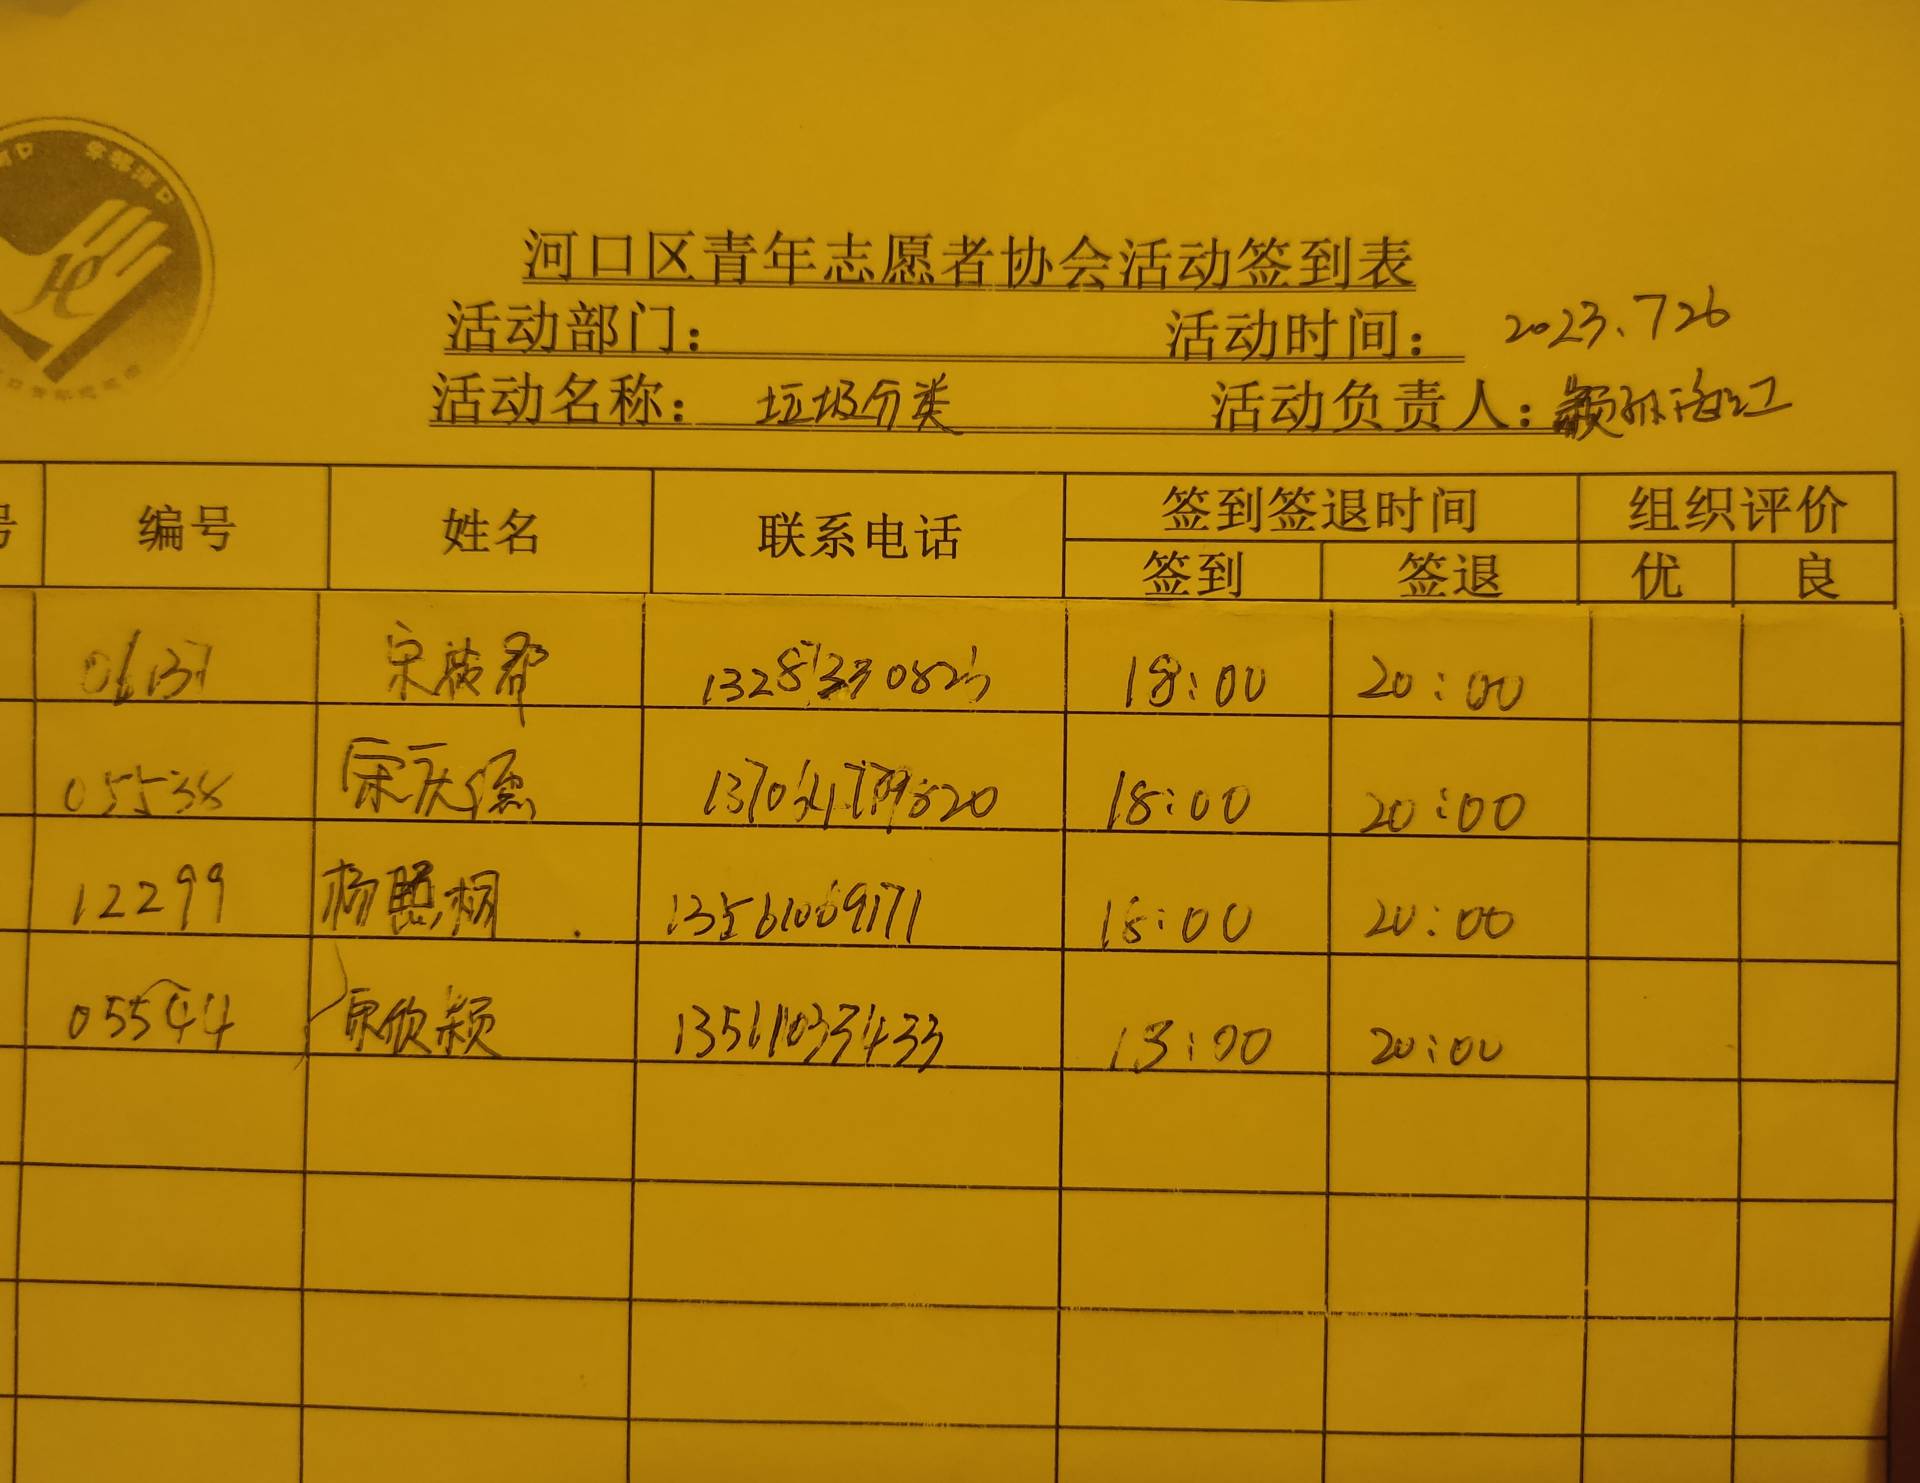 河口区青年志愿者协会活动签到表
活动部门： 活动时间： 2023.726
活动名称： 垃圾分类 活动负责人：
号 编号 姓名 联系电话 签到签退时间 组织评价
签到 签退 优 良
06137 宋 18:00 20:00
05538 宋庆儒 18:00 20:00
12299 杨熙桐 13561069171 18:00 20:00
05544 宋欣颖 13561103433 18:00 20:00